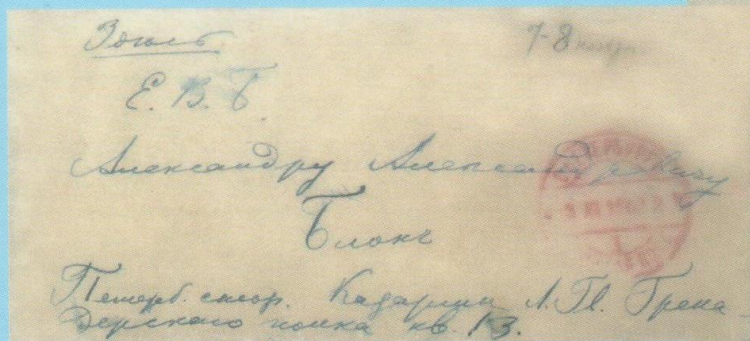 Здѣсь
7-8
Е. В. Б.
Александру Александровичу
Блокъ
Петерб. стор. Казармы Л. Гв. Грена-
дерскаго полка кв. 13.